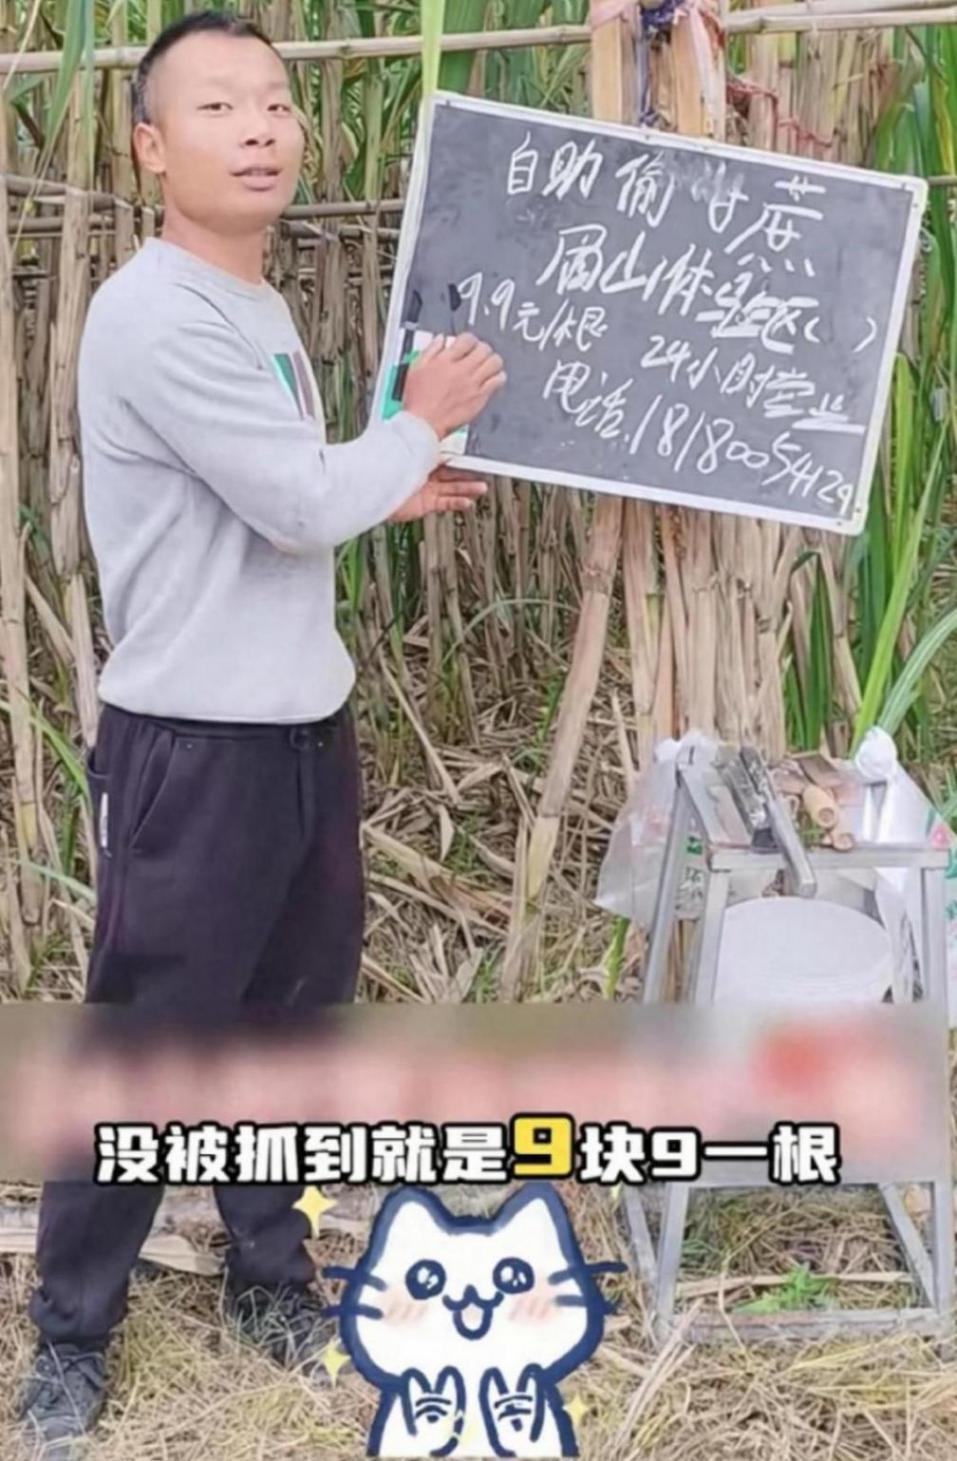 自助偷甘蔗
眉山体验区( )
9.9元/根 24小时营业
电话.18180054129
没被抓到就是9块9一根